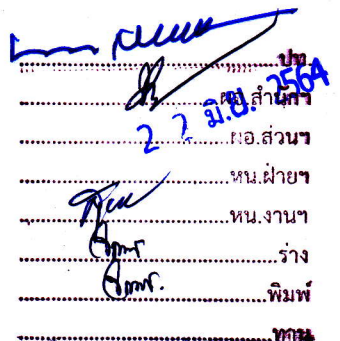 ปท
ผอ.สำนักฯ
22 มิ.ย. 2564
ผอ.ส่วนฯ
หน.ฝ่ายฯ
หน.งานฯ
ร่าง
พิมพ์
ทาน